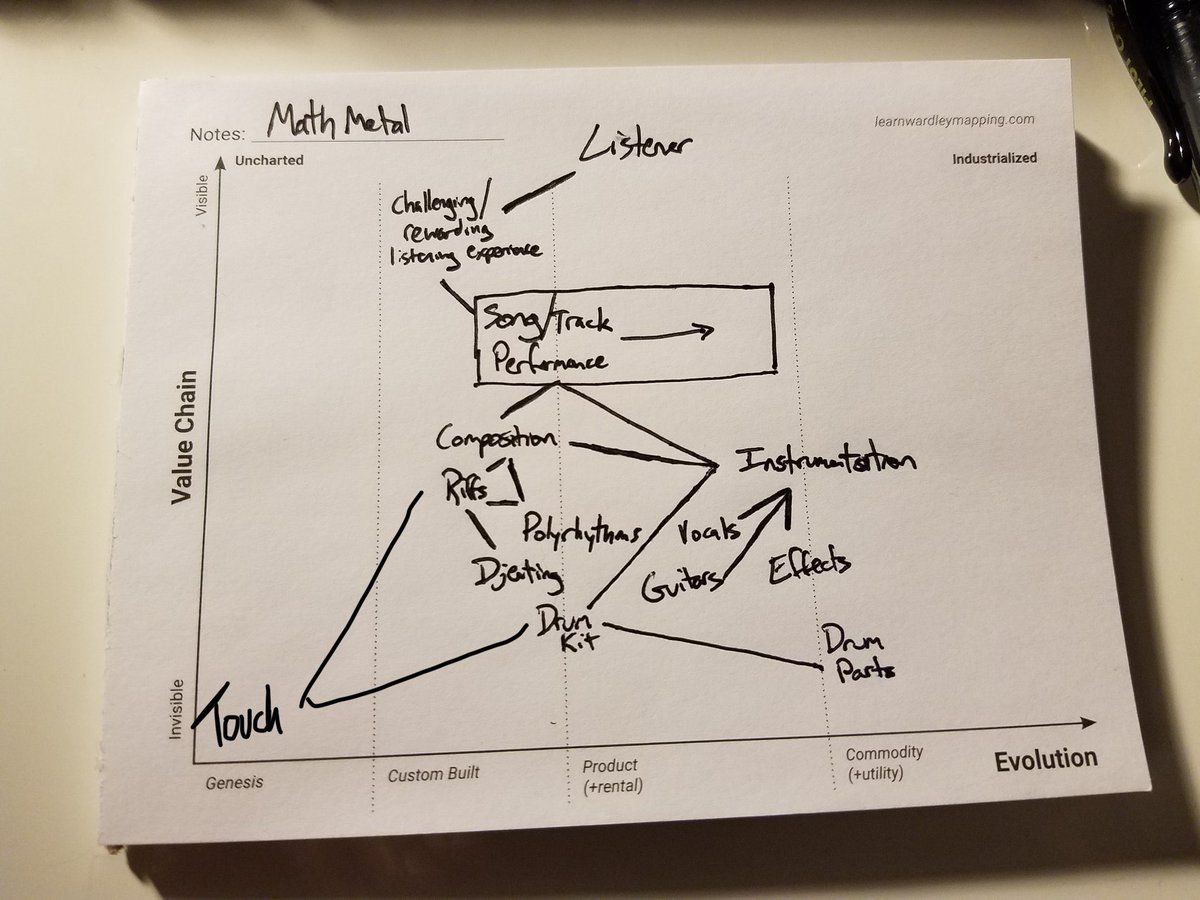 Notes: Math Metal
learnwardleymapping.com
Uncharted
Listener
Industrialized
Visible
Challenging/
rewarding
listening experience
Song/Track
Performance
Value Chain
Composition
Instrumentation
Riffs
Polyrhythms
Vocals
Djenting
Guitars
Effects
Drum
Kit
Drum
Parts
Invisible
Touch
Genesis
Custom Built
Product
(+rental)
Commodity
(+utility)
Evolution